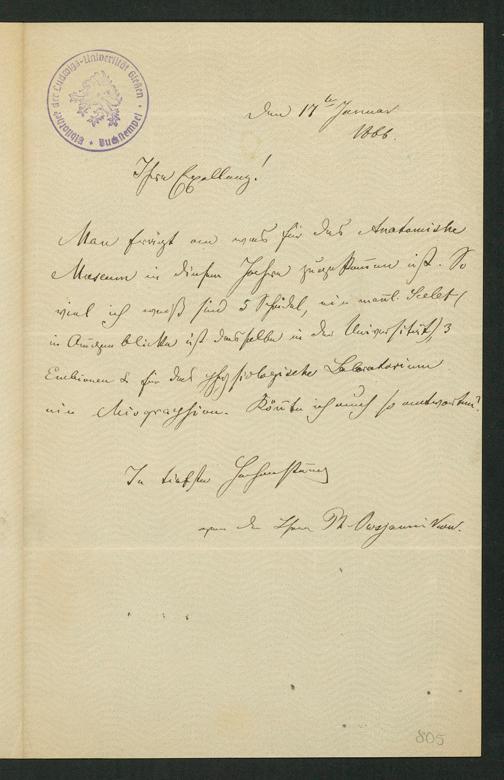 Bibliothek der Ludwigs-Universität Gießen
Buchstempel
Den 17te Januar
1866.
Ihre Excellenz!
Man frägt an was für das Anatomische
Museum in diesem Jahre zugekommen ist. So
viel ich weiß sind 5 Schädel, ein männl. Scelet (
im Augenblicke ist dasselbe in der Universität), 3
Embrionen & für das physiologische Laboratorium
ein Miographion. Könnte ich auch so antworten?
In tiefster Hochachtung
Ihrer Ph. Owsjannikow.
805